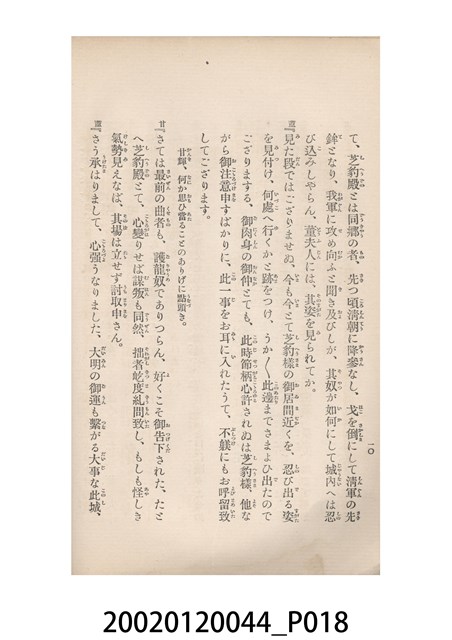 一〇
て、芝豹殿とは同鄕の者、先つ頃淸朝に降參なし、戈を倒にして淸軍の先
鋒となり、我軍に攻め向ふと聞き及びしが、其奴が如何にして城内へは忍
び込みしやらん、董夫人には、其姿を見られてか。
董『見た段ではござりませぬ、今も今とて芝豹樣の御居間近くを、忍び出る姿
を見付け、何處へ行くかと跡をつけ、うか〳〵此邊までさまよひ出たので
ござりまする、御肉身の御仲とても、此時節柄心許されぬは芝豹樣、他な
がら御注意申すばかりに、此一事をお耳に入れたうて、不躾にもお呼留致
してござります。
甘輝、何か思ひ當ることのありげに點頭き。
甘『さては最前の曲者も、護龍奴でありつらん、好くこそ御告下された、たと
へ芝豹殿とて、心變りせば謀叛も同然、拙者屹度糺問致し、もしも怪しき
氣勢見えなば、其場は立せず討取申さん。
董『さう承はりまして、心强うなりました、大明の御運も繫がる大事な此城、
20020120044_P018